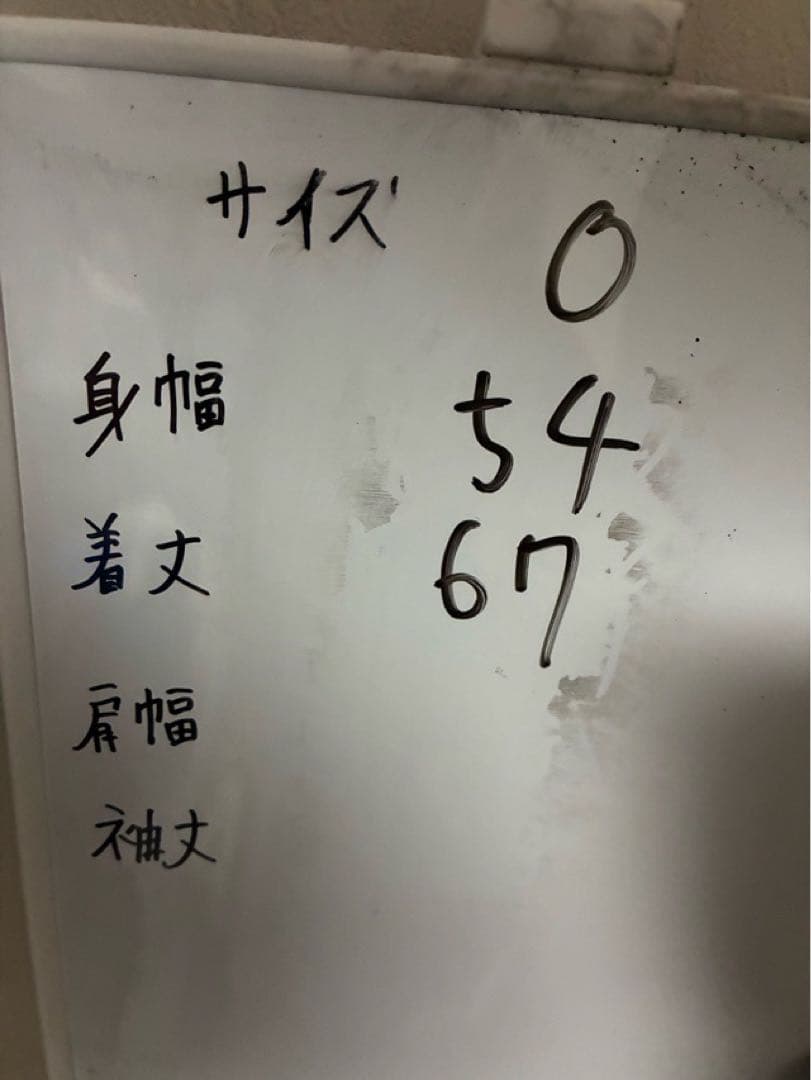 サイズ 0
身幅 54
着丈 67
肩幅
袖丈